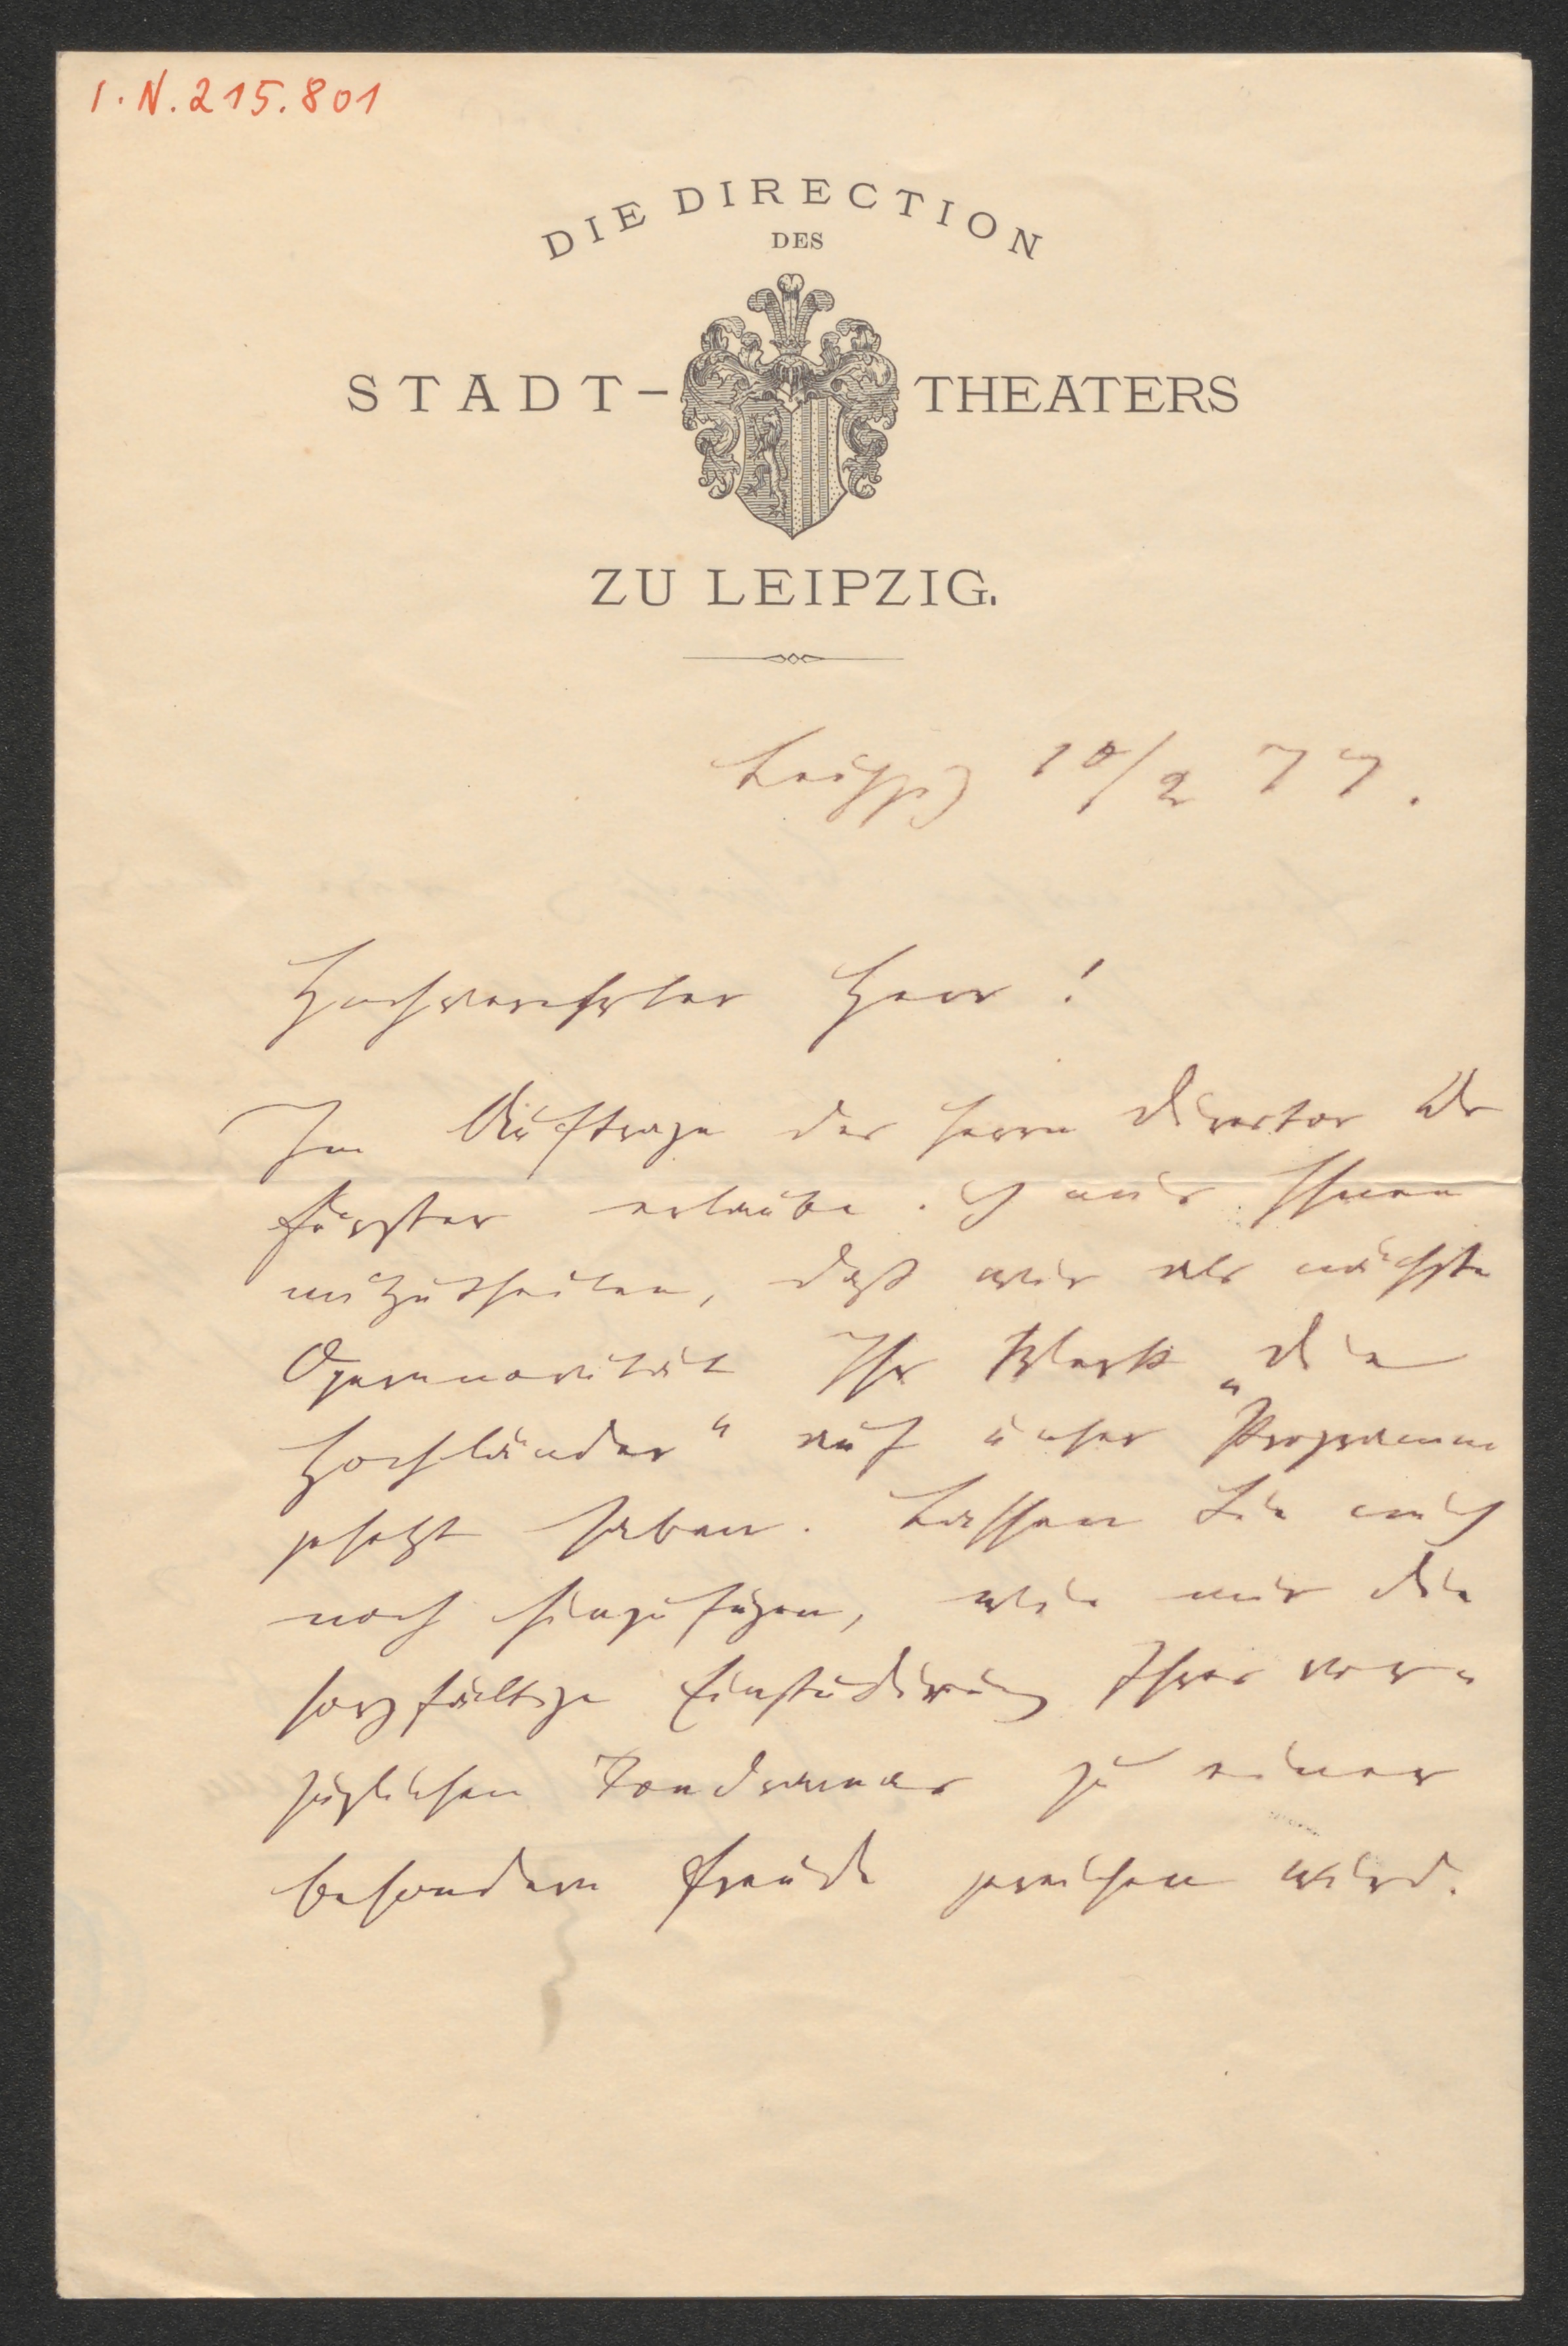 I.N.215.801
DIE DIRECTION
DES
STADT-THEATERS
ZU LEIPZIG.
Leipzig 10/2 77.
Hochverehrter Herr!
Im Auftrage des Herrn Director Dr
Förster erlaube ich mir Ihnen
mitzutheilen, daß wir als nächste
Opernnovität Ihr Werk „Die
Hochländer“ auf unser Programm
gesetzt haben. Lassen Sie mich
noch hinzufügen, wie mir die
sorgfältige Einstudirung Ihres vor-
züglichen Tondramas zu einer
besondern Freude gereichen wird.